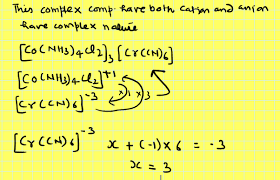 This complex comp. have both cation and anion
have complex nature
[CO(NH3)4Cl2]3 [Cr(CN)6]
[CO(NH3)4Cl2]+1
[Cr(CN)6]-3 x1 x3
[Cr(CN)6]-3 x + (-1) x 6 = -3
x = 3